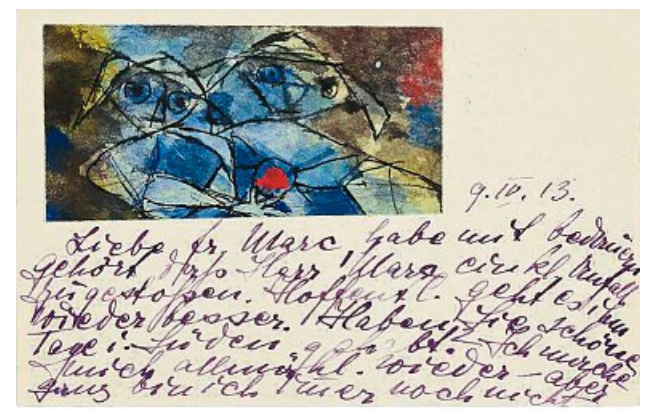 9.IV.13.
Liebe Fr. Marc, habe mit Bedauern
gehört dass Herr Marc ein kl. Unfall
zugestossen. Hoffentl. geht es ihm
wieder besser. Haben Sie schöne
Tage i. Süden gehabt. – Ich mache
mich allmähl. wieder – aber
ganz bin ich imer noch nicht